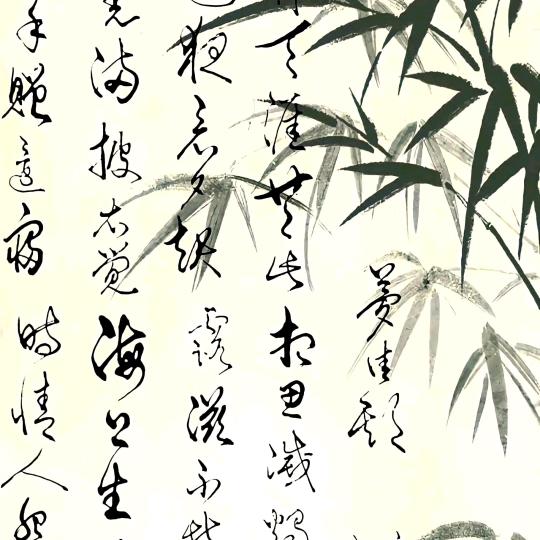 夢佳期
天涯共此相思滅燭
夜竟夕起露滋不堪
光滿披衣覺海上生
手贈還寢時情人怨